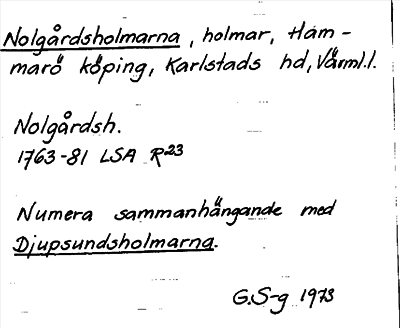 Nolgårdsholmarna, holmar, Ham-
marö köping, Karlstads hd, Värml.l.
Nolgårdsh.
1763-81 LSA R23
Numera sammanhängande med
Djupsundsholmarna.
G.S-g 1973